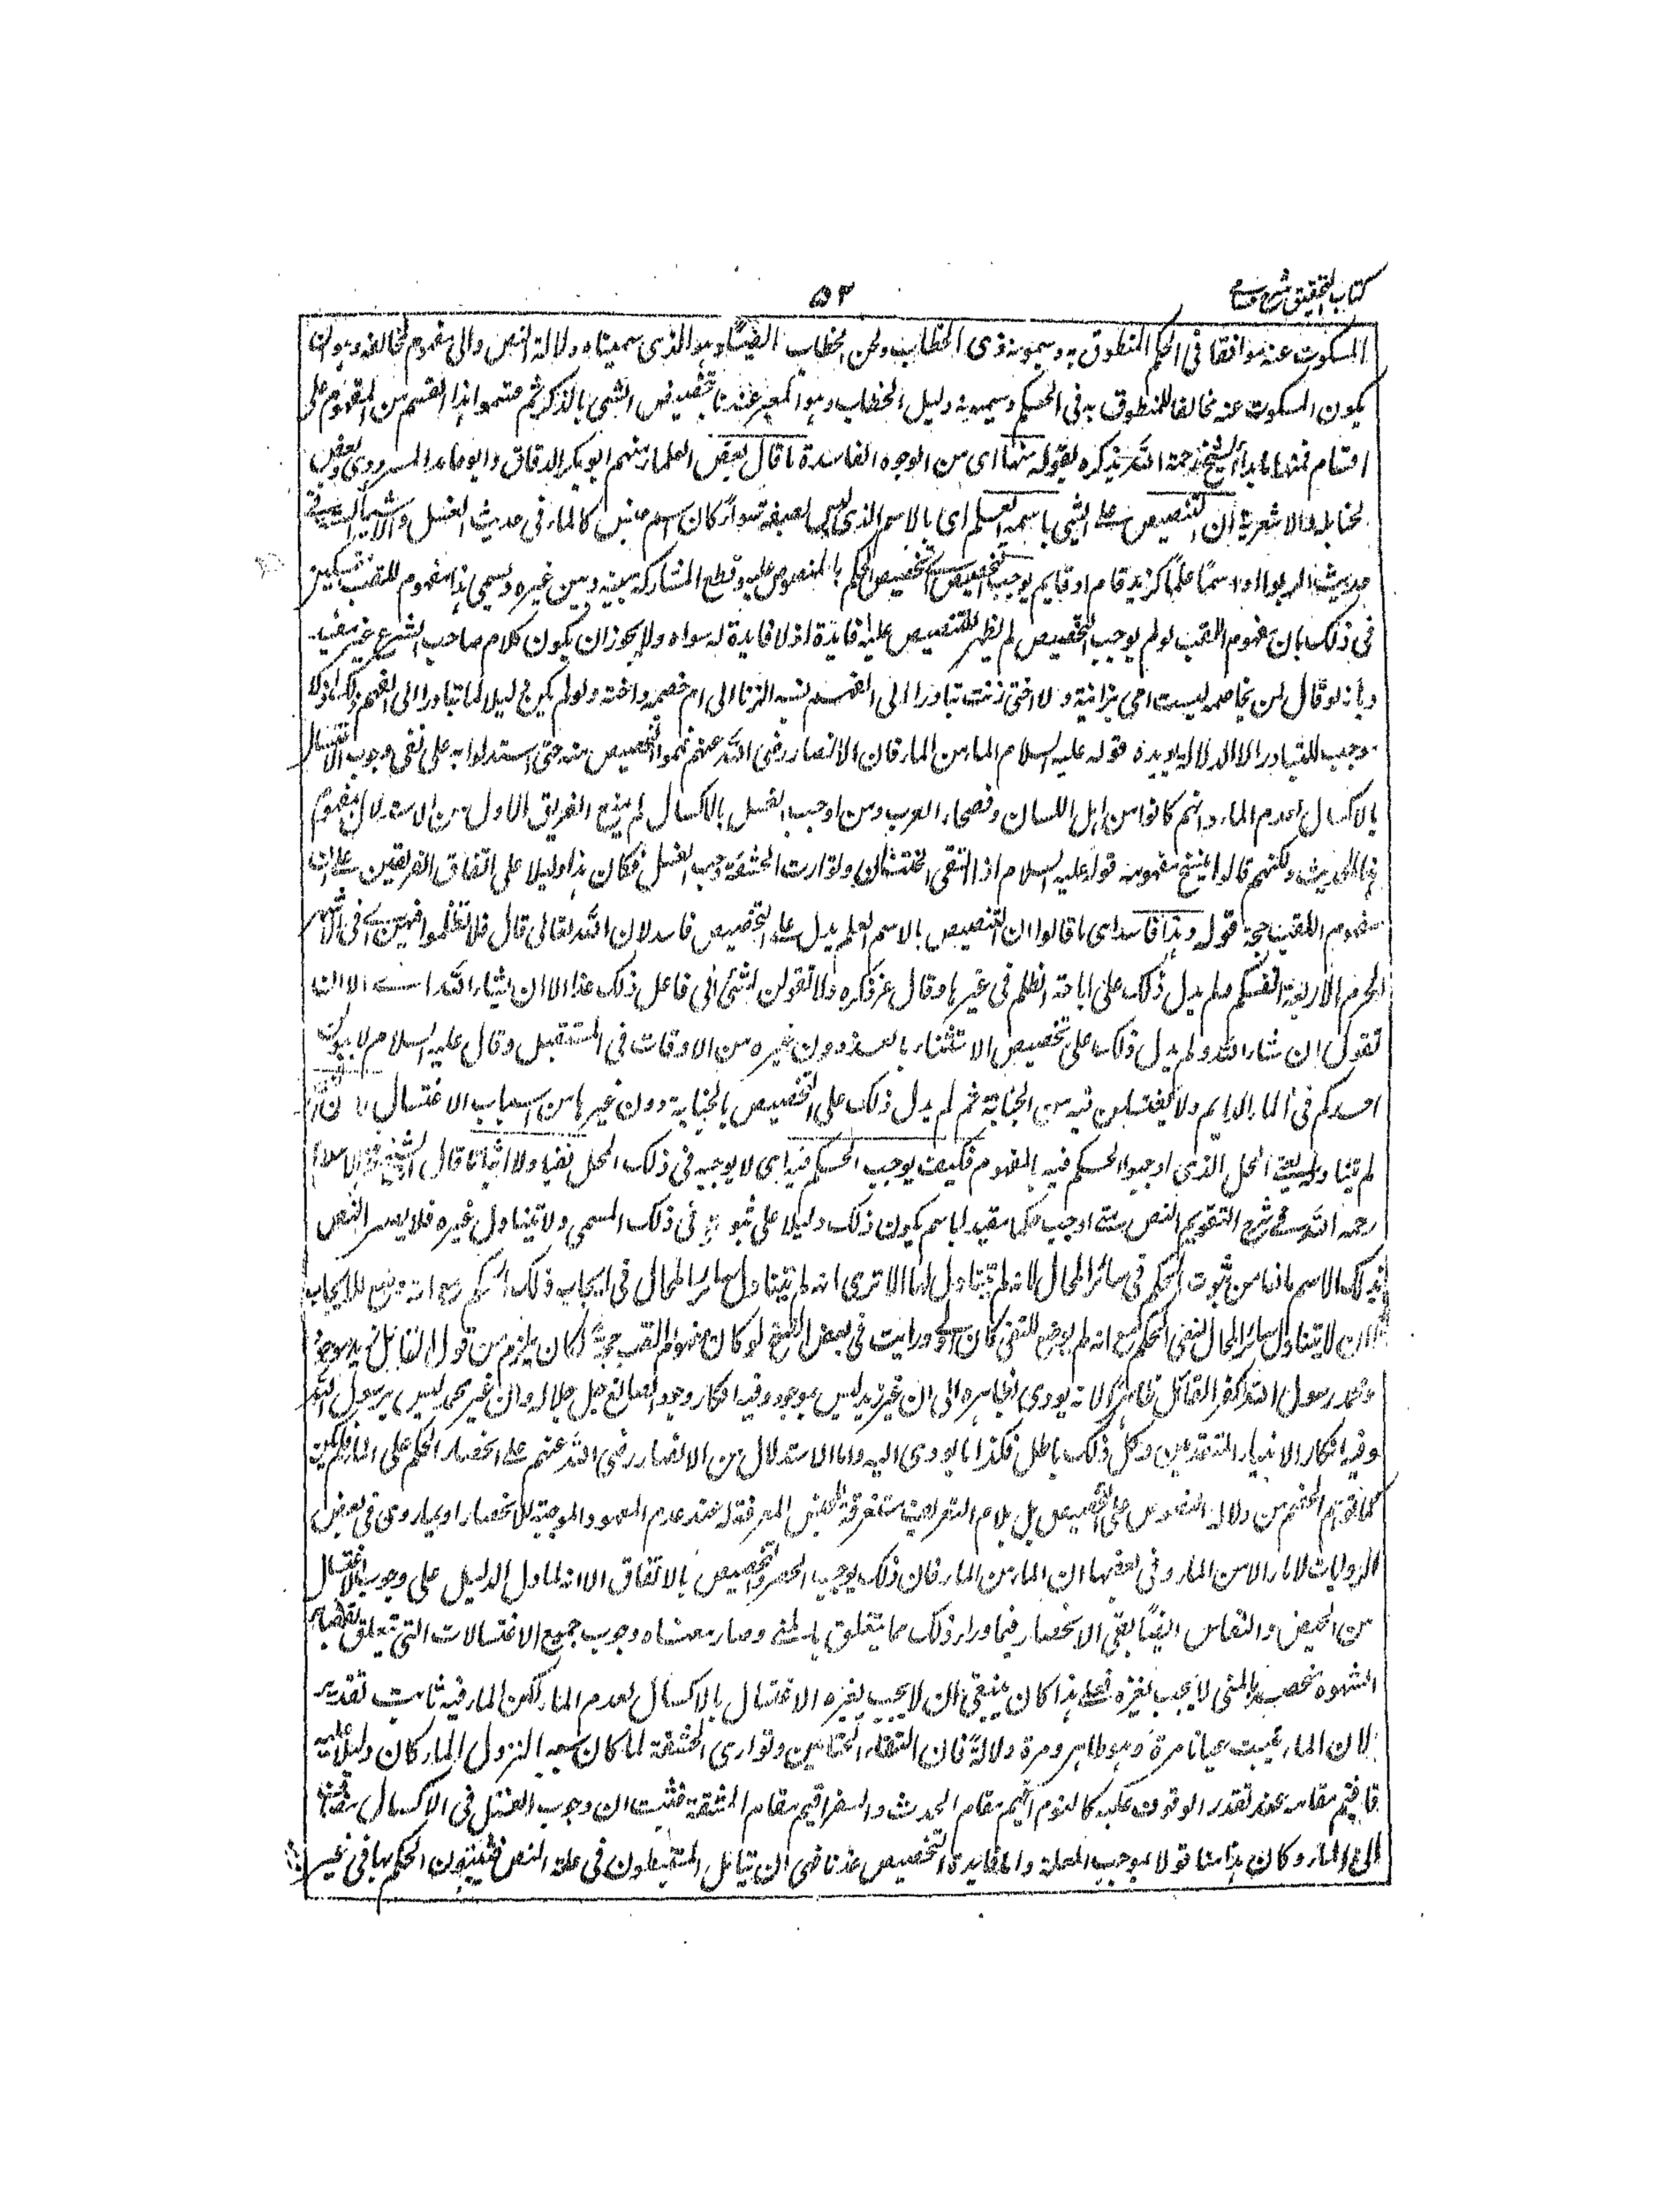 كتاب التحقيق شرح حسامى
٥٣
المسكوت عنه موافقا فى الحكم المنطوق به ويسمونه فحوى الخطاب ولحن الخطاب ايضًا وهو الذى سميناه دلالة النص والى مفهوم مخالفة وهو ان
يكون المسكوت عنه مخالفا للمنطوق به فى الحكم ويسمونه دليل الخطاب وهو المعبر عندنا بتخصيص الشئ بالذكر ثم قسموا هذا القسم من المفهوم على
اقسام فمنها ما بدأ الشيخ رحمة الله بذكره بقوله منها اى من الوجوه الفاسدة ما قال بعض العلماء منهم ابو بكر الدقاق وابو حامد المروروذى وبعض
الحنابلة والاشعرية ان التنصيص على الشئ باسمه العلم اى بالاسم الذى ليس بصفة سواء كان اسم جنس كالماء فى حديث الغسل والاشياء الستة فى
حديث الربوا او اسمًا علمًا كزيد قام او قايم يوجب التخصيص اى تخصيص الحكم بالمنصوص عليه وقطع المشاركة بينه وبين غيره ويسمى هذا مفهوم اللقب متمسكين
فى ذلك بان مفهوم اللقب لو لم يوجب التخصيص لم يظهر للتنصيص عليه فايدة اذ لا فايدة له سواه ولا يجوز ان يكون كلام صاحب الشرع غير مفيد
وبانه لو قال لمن يخاصمه ليست امى بزانية ولا اختى زنت تبادر الى الفهم نسبة الزنا الى ام خصمه واخته ولو لم يكن دليلا لما تبادر الى الفهم ذلك اذ لا
موجب للتبادر الا الدلالة ويؤيده قوله عليه السلام الماء من الماء فان الانصار رضى الله عنهم فهموا التخصيص منه حتى استدلوا به على نفى وجوب الاغتسال
بالاكسال لعدم الماء وانهم كانوا من اهل اللسان وفصحاء العرب ومن اوجب الغسل بالاكسال لم يمنع الفريق الاول من الاستدلال بمفهوم
هذا الحديث ولكنهم قالوا بنسخ مفهومه بقوله عليه السلام اذا التقى الختانان وتوارت الحشفة وجب الغسل فكان هذا دليلا على اتفاق الفريقين على ان
مفهوم اللقب حجة قوله وهذا فاسد اى ما قالوا ان التنصيص بالاسم العلم يدل على التخصيص فاسد لان الله تعالى قال فلا تظلموا فيهن اى فى الاشهر
الحرم الاربعة انفسكم ولم يدل ذلك على اباحة الظلم فى غيرها وقال عز ذكره ولا تقولن لشئ انى فاعل ذلك غدا الا ان يشاء الله اى الا ان
تقول ان شاء الله ولم يدل ذلك على تخصيص الاستثناء بالغد دون غيره من الاوقات فى المستقبل وقال عليه السلام لا يبولن
احدكم فى الماء الدايم ولا يغتسلن فيه من الجنابة ثم لم يدل ذلك على التخصيص بالجنابة دون غيرها من اسباب الاغتسال
لم يتناوله اى المحل الذى اوجبوا الحكم فيه بالمفهوم فكيف يوجب الحكم فيه اى لا يوجبه فى ذلك المحل نفيا ولا اثباتا قال الشيخ فخر الاسلام
رحمه الله فى شرح التقويم النص متى اوجب حكما مقيدا باسم يكون ذلك دليلا على ثبوته فى ذلك المسمى ولا يتناول غيره فلا يصير النص
بذلك الاسم مانعا من ثبوت الحكم فى سائر المحال لانه لم يتناولها الا ترى انه لم يتناول سائر المحال فى ايجاب ذلك الحكم مع انه وضع للايجاب
فلان لا يتناول سائر المحال لنفى الحكم مع انه لم يوضع للنفى كان اولى ورايت فى بعض النسخ لو كان مفهوم اللقب حجة لكان يلزم من قول القائل زيد موجود
ومحمد رسول الله كفر القائل ظاهرًا لانه يودى بظاهره الى ان غير زيد ليس بموجود وفيه انكار وجود الصانع جل جلاله وان غير محمد ليس برسول الله
وفيه انكار الانبياء المتقدمين وكل ذلك باطل فكذا ما يودى اليه واما الاستدلال من الانصار رضى الله عنهم على انحصار الحكم على الماء فلم يكن
لما توهم الخصم من دلالة النصوص على التخصيص بل بلام التعريف المستغرقة للجنس المعرفة له عند عدم المعهود الموجبة للانحصار او بما روى فى بعض
الروايات لا ماء الا من الماء وفى بعضها ان الماء من الماء فان ذلك يوجب الحصر والتخصيص بالاتفاق الا انه لما دل الدليل على وجوب الاغتسال
من الحيض والنفاس ايضًا بقى الانحصار فيما وراء ذلك مما يتعلق بالمنى وصار معناه وجوب جميع الاغتسالات التى تتعلق بقضاء
الشهوة منحصر بالمنى لا يجب بغيره فعلى هذا كان ينبغى ان لا يجب بغيره الاغتسال بالاكسال لعدم الماء لكن الماء فيه ثابت تقديرا
لان الماء يثبت عيانا مرة وهو ظاهر ومرة دلالة فان التقاء الختانين وتوارى الحشفة لما كان سببا لنزول الماء كان دليلا عليه
فاقيم مقامه عند تعذر الوقوف عليه كالنوم اقيم مقام الحدث والسفر اقيم مقام المشقة فثبت ان وجوب الغسل فى الاكسال مضاف
الى الماء وكان هذا منا قولا بموجب العلة واما فايدة التخصيص عندنا فهى ان يتامل المستنبطون فى علة النص فيثبتون الحكم بها فى غير